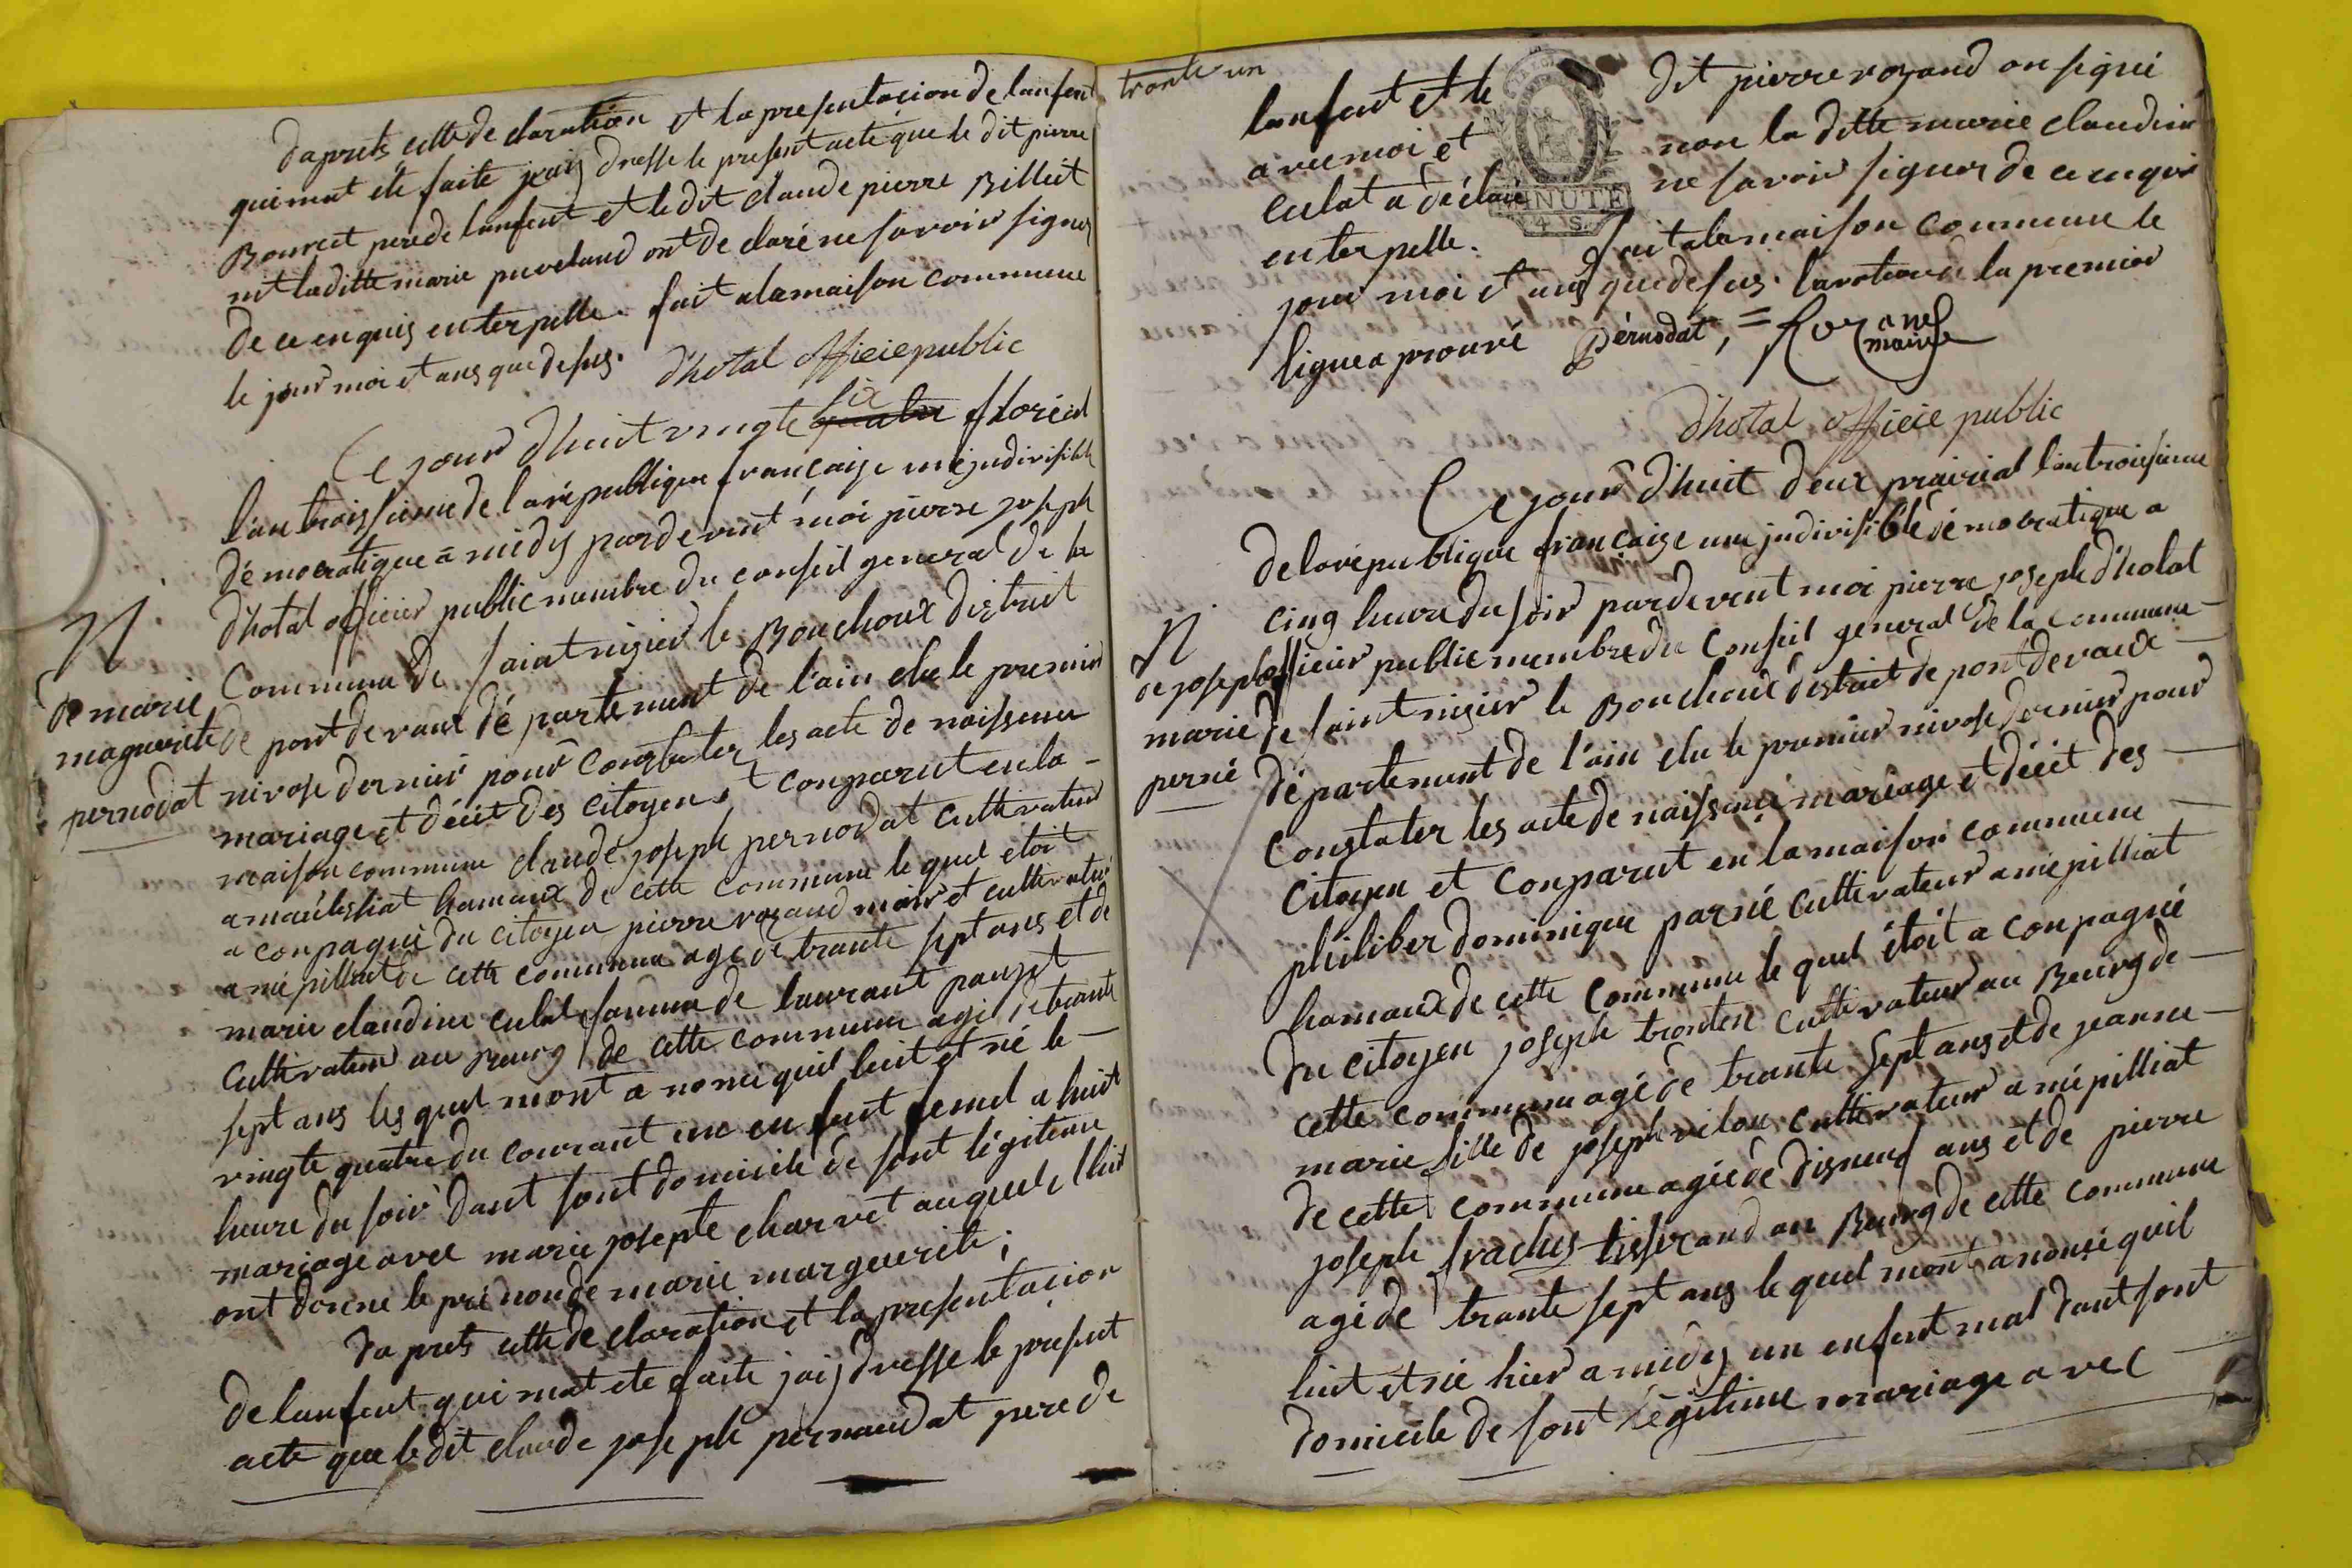 daprets cette de claration et la presentacion de lanfent
qui mat ete faite jeais dresse le present acte que le dit pierre
Bourcet pere de lanfent et le dit claude pierre Billiet
nit la ditte marie puvelund ont de claré ne savoir signer
de ce enquis enterpelle. fait a la maison commune
le jour moi et ans que desus.
d'hotal officie public
Ce jour d'huit vingte quatre six floréal
l'an troissieme de la république française une jndivisible
démocratique a midy pardevent moi pierre joseph
d'hotal officier public membre du conseil general de la
Commune de saint nizier le Bouchoux district
de pont de vaux département de l'ain elu le premier
nivose dernier pour constater les acte de naissence
mariage et décit des citoyens et conparut en la -
maison commune claude joseph pernodat cultivateur
a maülishiat hamaux de cette commune le quel etoit
a conpagnié du citoyen pierre rozand maire et cultivateur
a mépilliat de cette commune age de trante sept ans et de
marie claudine culat famme de laurant pauget
cultivateur au Bourg de cette commune agé de trante
sept ans les quel m'ont a noncé quil luit et né le -
vingte quatre du courant un en fent femel a huit
heure du soir dant sont domicile de sont légitime
mariage avec marie josepte charvet auquel luit
ont donné le pré nom de marie marguerite ;
da prets cette de claration et la presentacion
de lanfent qui mat ete faite jaij dresse le présent
acte que le dit claude joseph pernaudat pere de
N.
de marie
maguerite
pernodat
trante un
lanfent et le
avec moi et
culat a déclaré
enterpelle.
MINUTE
4 S.
dit pierre rozand on signé
non la ditte marie claudine
ne savoir signer de ce enquis
fait a la maison commune le
jour moi et ans que desus. la rature a la premier
ligne a prouvé Pérnodat, = Rozand
maire
d'hotal officie public
Ce jour d'huit deux prairial l'an troisieme
de la république française une jndivisible démocratique a
cinq heure du soir pardevent moi pierre joseph d'hotal
officier public membre du conseil general de la commune -
de saint nizier le Bouchoux district de pont de vaux -
département de l'ain elu le premier nivose dernier pour
constater les acte de naissence mariage et décit des -
citoyen et conparut en la maison commune -
philiber dominique parné cultivateur a mépilliat
hamaux de cette commune le quel étoit a conpagnié
du citoyen joseph tronten cultivateur au Bourg de -
cette commune agé de trante sept ans et de jeanne -
marie fille de joseph vilon cultivateur a mépilliat
de cette commune agée de disneuf ans et de pierre
joseph frachis tisserand au Bourg de cette commune
agé de trante sept ans le quel m'ont anonsé quil
luit et né hier a midy un enfent mal dant sont
domicile de sont légitime mariage avec
N
de joseph
marie
perné